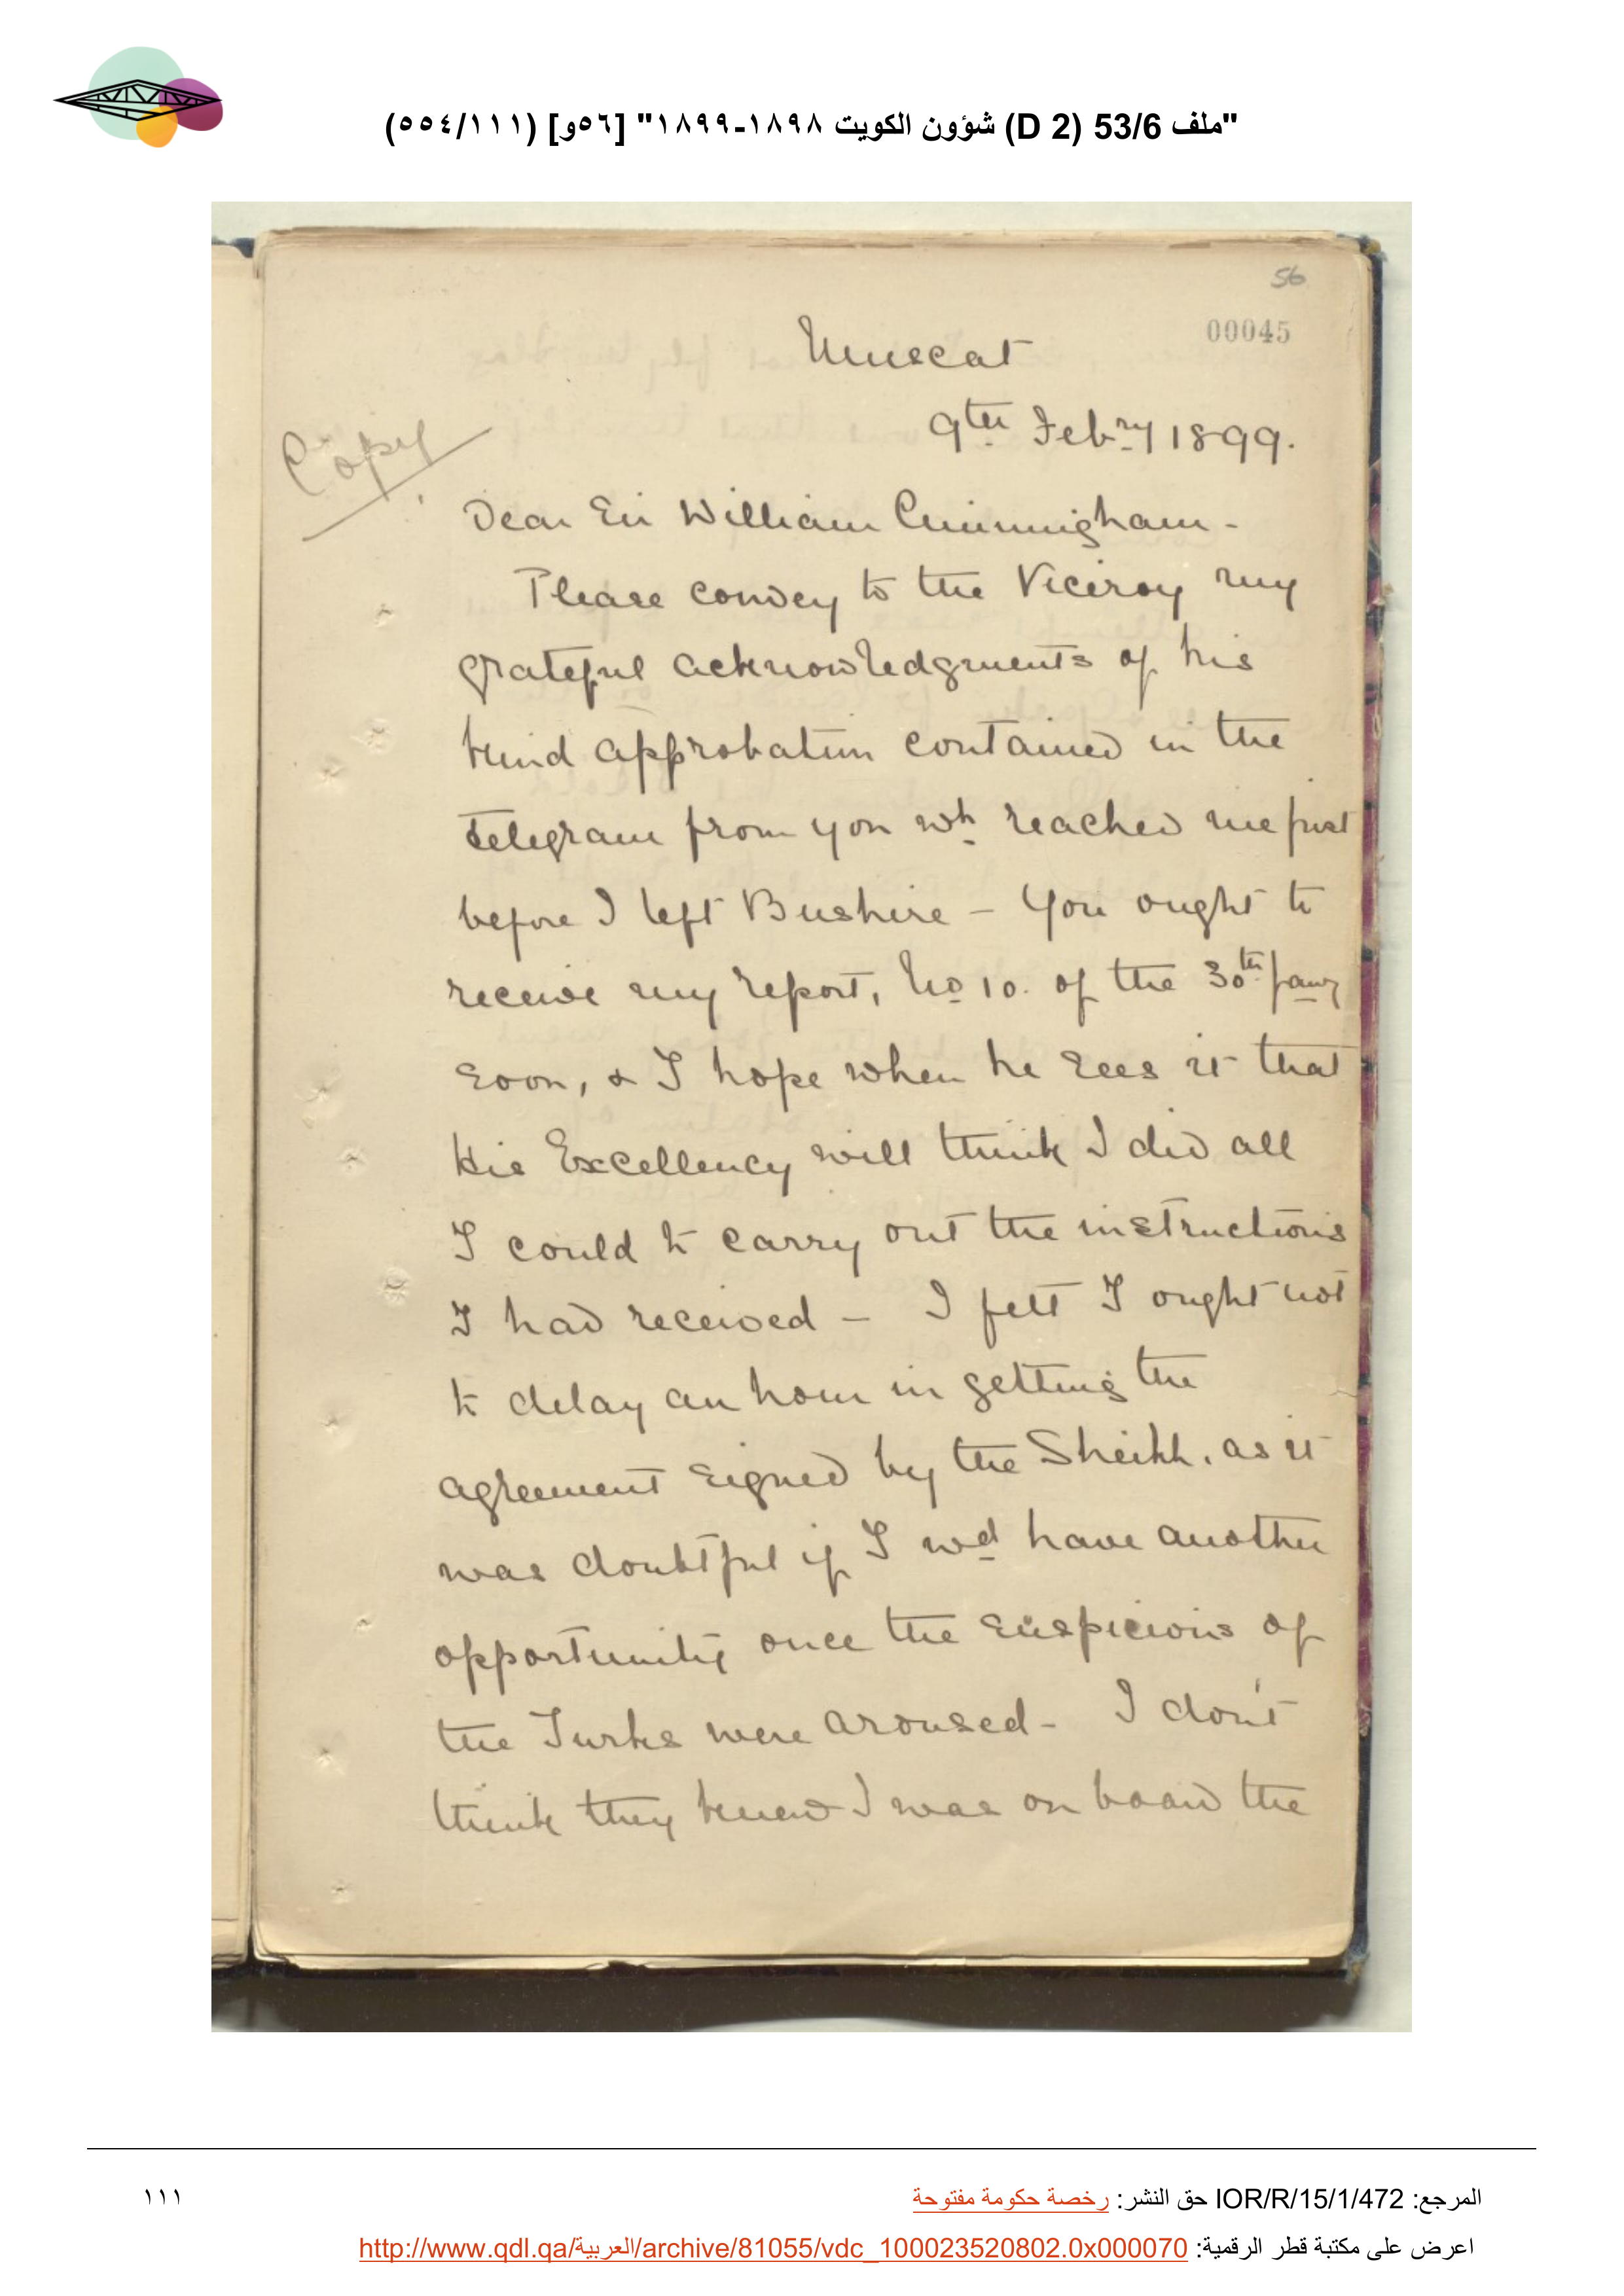 "ملف 53/6 (D 2) شؤون الكويت ١٨٩٨-١٨٩٩" [٥٦و] (٥٥٤/١١١)
56
00045
Muscat
9th Febry 1899.
Copy
Dear Sir William Cuninngham -
Please convey to the Viceroy my
grateful acknowledgments of his
kind approbation contained in the
telegram from you wh reached me just
before I left Bushire - You ought to
receive my report, No 10. of the 30th Jany
soon, & I hope when he sees it that
His Excellency will think I did all
I could to carry out the instructions
I had received - I felt I ought not
to delay an hour in getting the
agreement signed by the Sheikh, as it
was doubtful if I wd have another
opportunity once the suspicions of
the Turks were aroused - I don't
think they knew I was on board the
المرجع: IOR/R/15/1/472 حق النشر: رخصة حكومة مفتوحة
١١١
اعرض على مكتبة قطر الرقمية: http://www.qdl.qa/العربية/archive/81055/vdc_100023520802.0x000070